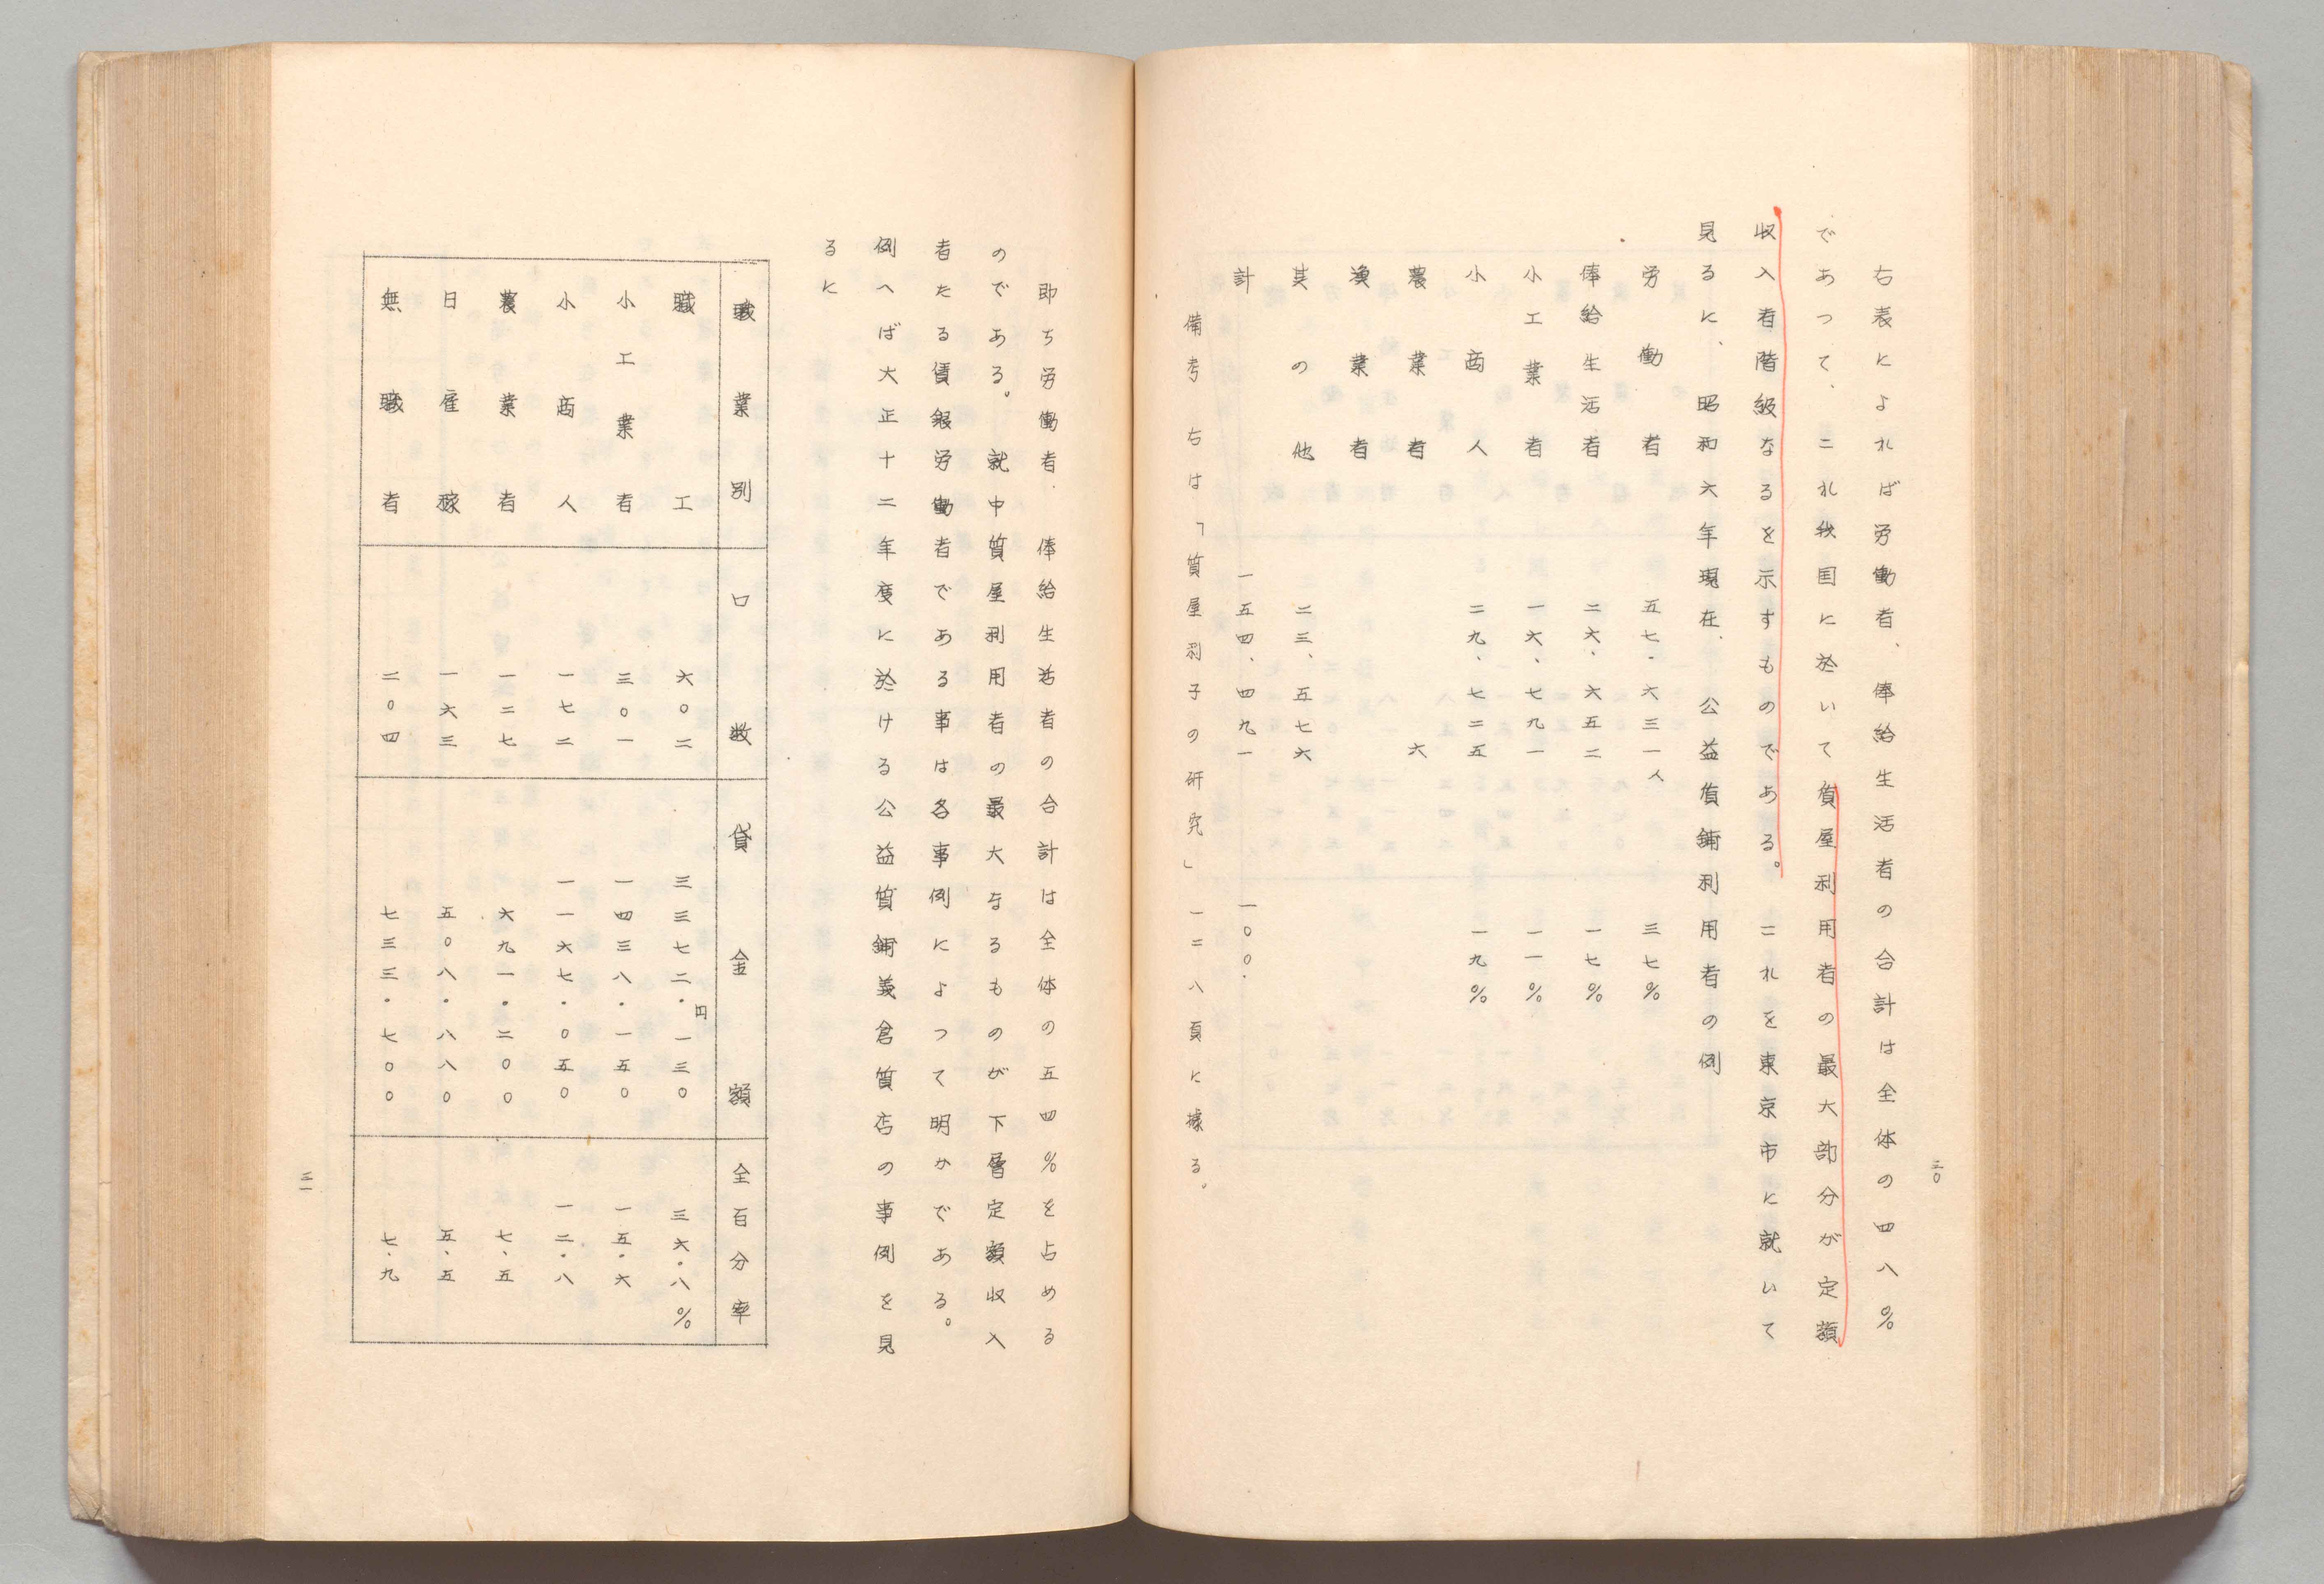 二〇
右表によれば労働者、俸給生活者の合計は全体の四八%
であつて、これ我国に於いて質屋利用者の最大部分が定額
収入者階級なるを示すものである。これを東京市に就いて
見るに、昭和六年現在、公益質舗利用者の例
労働者 五七・六三一人 三七%
俸給生活者 二六、六五二 一七%
小工業者 一六、七九一 一一%
小商人 二九、七二五 一九%
農業者 六
漁業者
其の他 二三、五七六
計 一五四、四九一 一〇〇.
備考 右は「質屋利子の研究」一二八頁に拠る。
即ち労働者.俸給生活者の合計は全体の五四%を占める
のである。就中質屋利用者の最大なるものが下層定額収入
者たる賃銀労働者である事は各事例によつて明かである。
例へば大正十二年度に於ける公益質舗義倉質店の事例を見
るに
職業別 口数 貸金額 全百分率
職工 六〇二 三三七二・円一三〇 三六・八%
小工業者 三〇一 一四三八・一五〇 一五・六
小商人 一七二 一一六七・〇五〇 一二・八
農業者 一二七 六九一・二〇〇 七、五
日雇稼 一六三 五〇八・八八〇 五、五
無職者 二〇四 七三三・七〇〇 七・九
三一